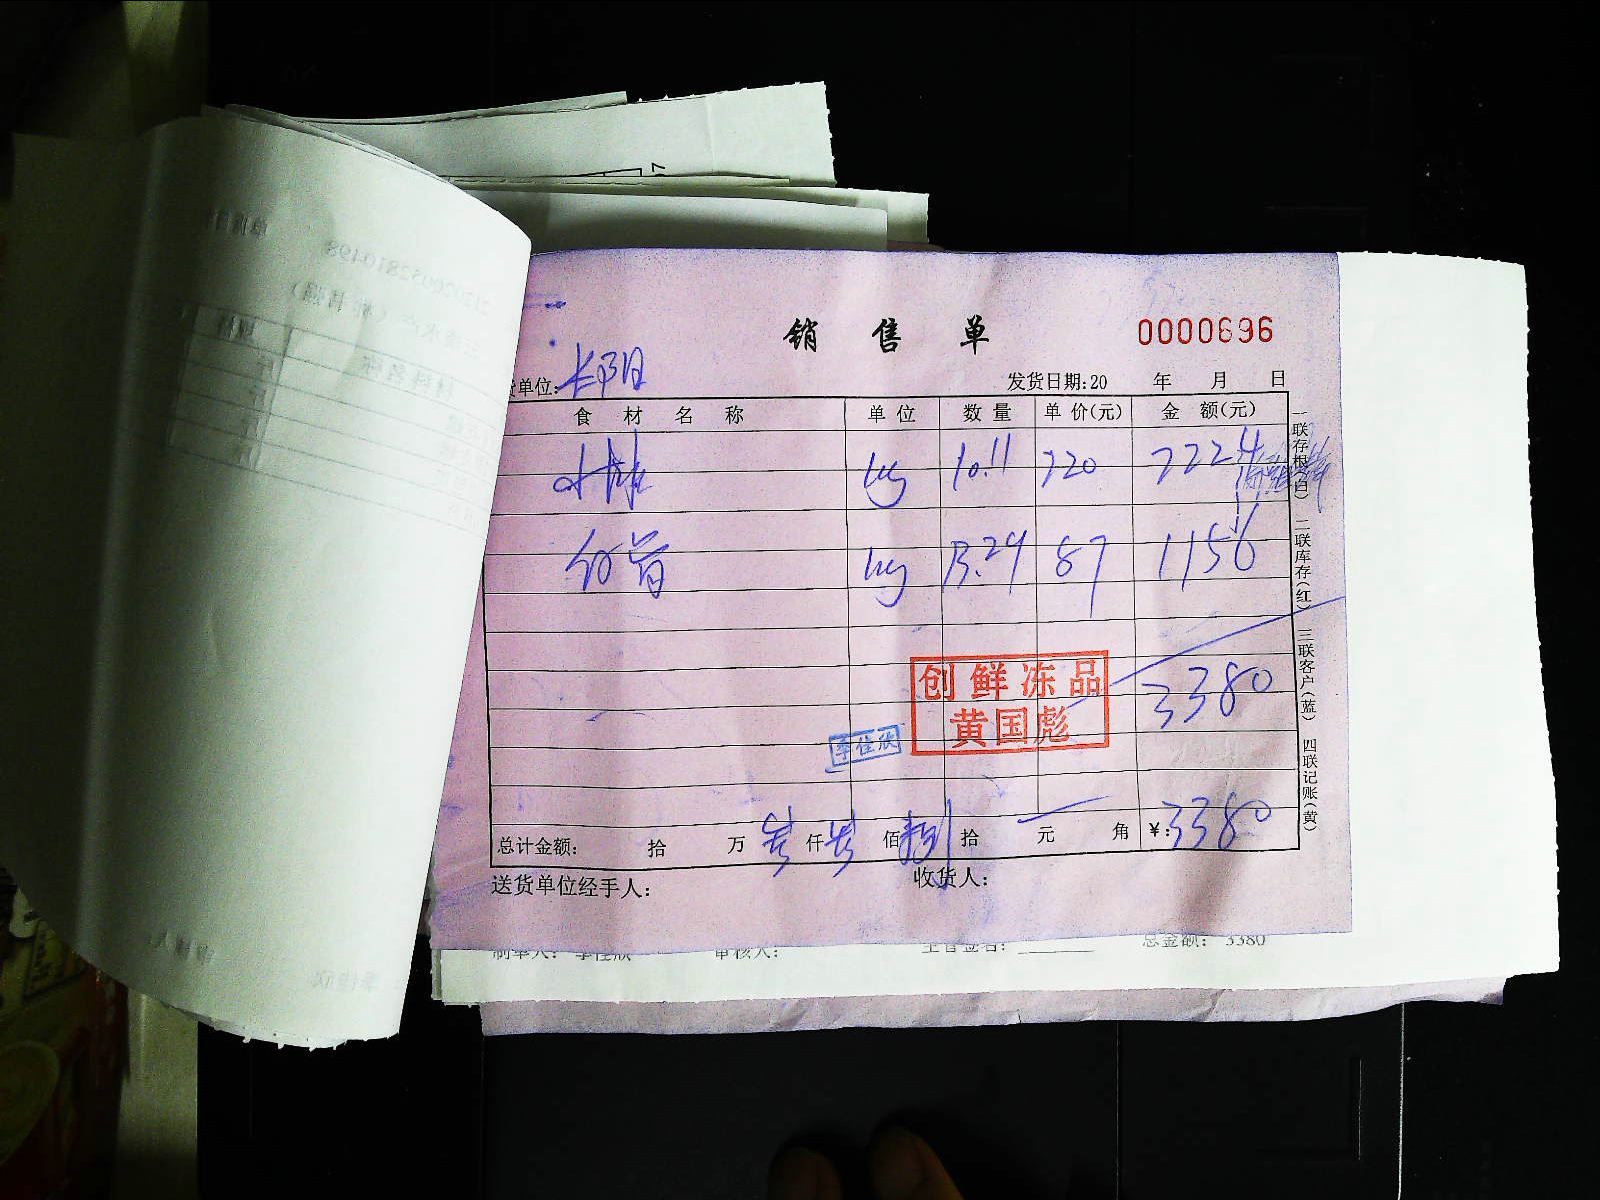 销售单 0000696
货单位: 长阳 发货日期:20 年 月 日
食材名称 单位 数量 单价(元) 金额(元)
kg 10.11 220 2224
kg 13.29 87 1156
3380
创鲜冻品
黄国彪
李佳欣
总计金额: 拾 万 叁 仟 叁 佰 捌 拾 元 角 ¥:3380
送货单位经手人: 收货人:
一联存根(白) 二联库存(红) 三联客户(蓝) 四联记账(黄)
制单人: 李佳欣 审核人: 主管签名: 总金额: 3380